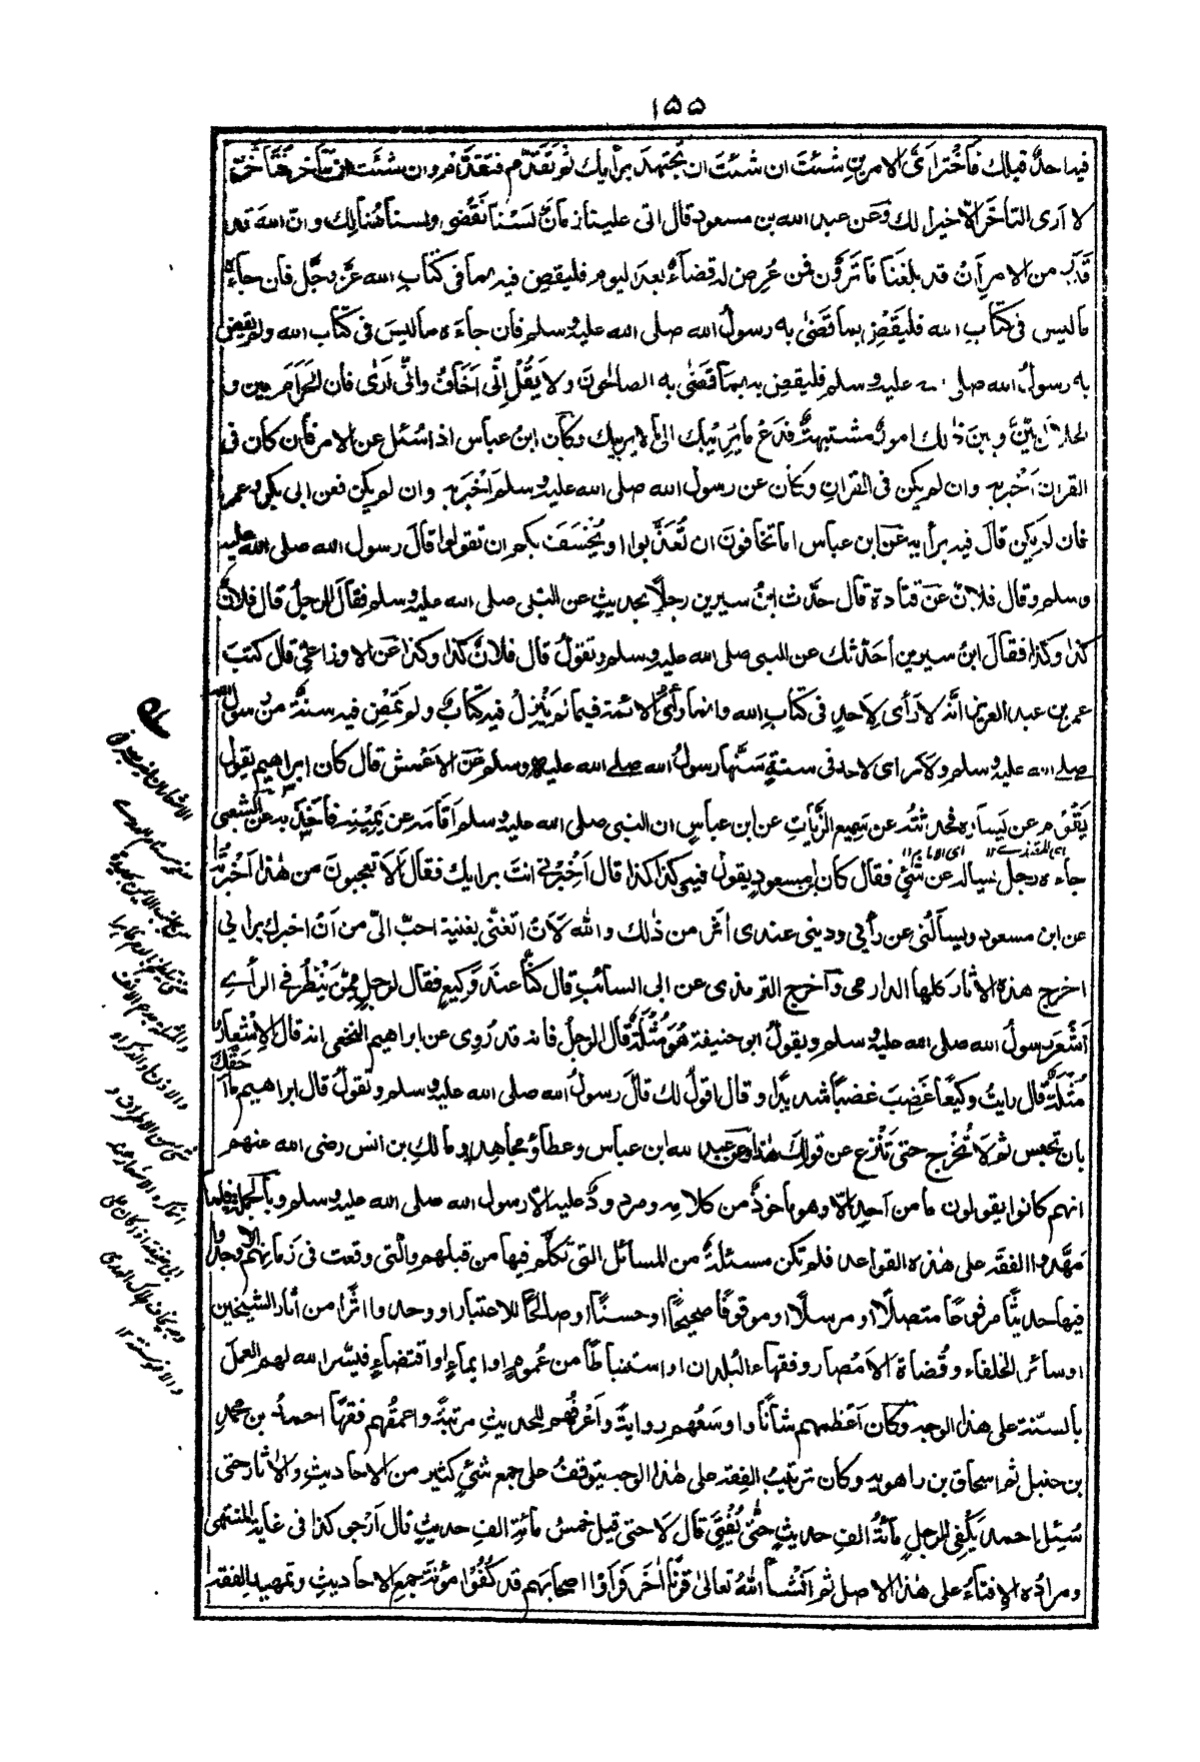 ١٥٥
فيه احدٌ قبلك فاختر اىَّ الامرين شئتَ ان شئتَ ان تجتهد برأيك ثم تقدَّم فتقدَّم وان شئت ان تتأخر فتأخر
لا ارى التأخر الا خيرا لك وعن عبد الله بن مسعود قال اتى علينا زمان لسنا نقضى ولسنا هنالك وان الله قد
قدّر من الامر ان قد بلغنا ما ترون فمن عرض له قضاء بعد اليوم فليقض فيه بما فى كتاب الله عز وجل فان جاءه
ما ليس فى كتاب الله فليقض بما قضى به رسول الله صلى الله عليه وسلم فان جاءه ما ليس فى كتاب الله ولم يقض
به رسول الله صلى الله عليه وسلم فليقض به بما قضى به الصالحون ولا يقل انى اخاف وانى ارى فان الحرام بين و
الحلال بين وبين ذلك امور مشتبهة فدع ما يريبك الى ما لا يريبك وكان ابن عباس اذا سئل عن الامر فان كان فى
القران اخبر به وان لم يكن فى القران وكان عن رسول الله صلى الله عليه وسلم اخبر به وان لم يكن فعن ابى بكر وعمر
فان لم يكن قال فيه برأيه عن ابن عباس اما تخافون ان تعذبوا او يخسف بكم ان تقولوا قال رسول الله صلى الله عليه
وسلم وقال فلان عن قتادة قال حدّث ابن سيرين رجلا بحديث عن النبى صلى الله عليه وسلم فقال الرجل قال فلان
كذا وكذا فقال ابن سيرين أحدثك عن النبى صلى الله عليه وسلم وتقول قال فلان كذا وكذا عن الاوزاعى قال كتب
عمر بن عبد العزيز انه لا رأى لاحد فى كتاب الله وانما رأى الائمة فيما لم ينزل فيه كتاب ولم تمض فيه سنة من رسول الله
صلى الله عليه وسلم ولا رأى لاحد فى سنة سنها رسول الله صلى الله عليه وسلم عن الاعمش قال كان ابراهيم يقول
يقوم عن يساره فحدثته عن سميع الزيات عن ابن عباس ان النبى صلى الله عليه وسلم اقامه عن يمينه فاخذ به عن الشعبى
جاءه رجل يساله عن شئ فقال كان ابن مسعود يقول فيه كذا كذا قال اخبرنى انت برايك فقال الا تعجبون من هذا اخبرته
عن ابن مسعود ويسألنى عن رأيى ودينى عندى اثر من ذلك والله لان اتغنى بغنية احب الىّ من ان اخبرك برايى
اخرج هذه الاثار كلها الدارمى واخرج الترمذى عن ابى السائب قال كنا عند وكيع فقال لرجل ممن ينظر فى الرأى
اشعر رسول الله صلى الله عليه وسلم ويقول ابو حنيفة هو مثلة قال الرجل فانه قد روى عن ابراهيم النخعى انه قال الاشعار
مثلة قال رايت وكيعا غضب غضبا شديدا وقال اقول لك قال رسول الله صلى الله عليه وسلم وتقول قال ابراهيم ما احقك
بان تحبس ثم لا تخرج حتى تنزع عن قولك هذا وعن عبد الله ابن عباس وعطاء ومجاهد ومالك بن انس رضى الله عنهم
انهم كانوا يقولون ما من احد الا وهو مأخوذ من كلامه ومردود عليه الا رسول الله صلى الله عليه وسلم وبالجملة فلما
مهدوا الفقه على هذه القواعد فلم تكن مسئلة من المسائل التى تكلم فيها من قبلهم والتى وقعت فى زمانهم الا وجدوا
فيها حديثا مرفوعا متصلا او مرسلا او موقوفا صحيحا او حسنا او صالحا للاعتبار او وجدوا اثرا من اثار الشيخين
او سائر الخلفاء وقضاة الامصار وفقهاء البلدان او استنباطا من عموم او ايماء او اقتضاء فيسّر الله لهم العمل
بالسنة على هذا الوجه وكان اعظمهم شأنا واوسعهم رواية واعرفهم للحديث مرتبة واعمقهم فقها احمد بن محمد
بن حنبل ثم اسحاق بن راهويه وكان ترتيب الفقه على هذا الوجه يتوقف على جمع شئ كثير من الاحاديث والاثار حتى
سئل احمد يكفى الرجل مائة الف حديث حتى يفتى قال لا حتى قيل خمس مائة الف حديث قال ارجى كذا فى غاية المنتهى
ومراده الافتاء على هذا الاصل ثم انشأ الله تعالى قرنا اخر فرأوا اصحابهم قد كفوا مؤنة جمع الاحاديث وتمهيد الفقه